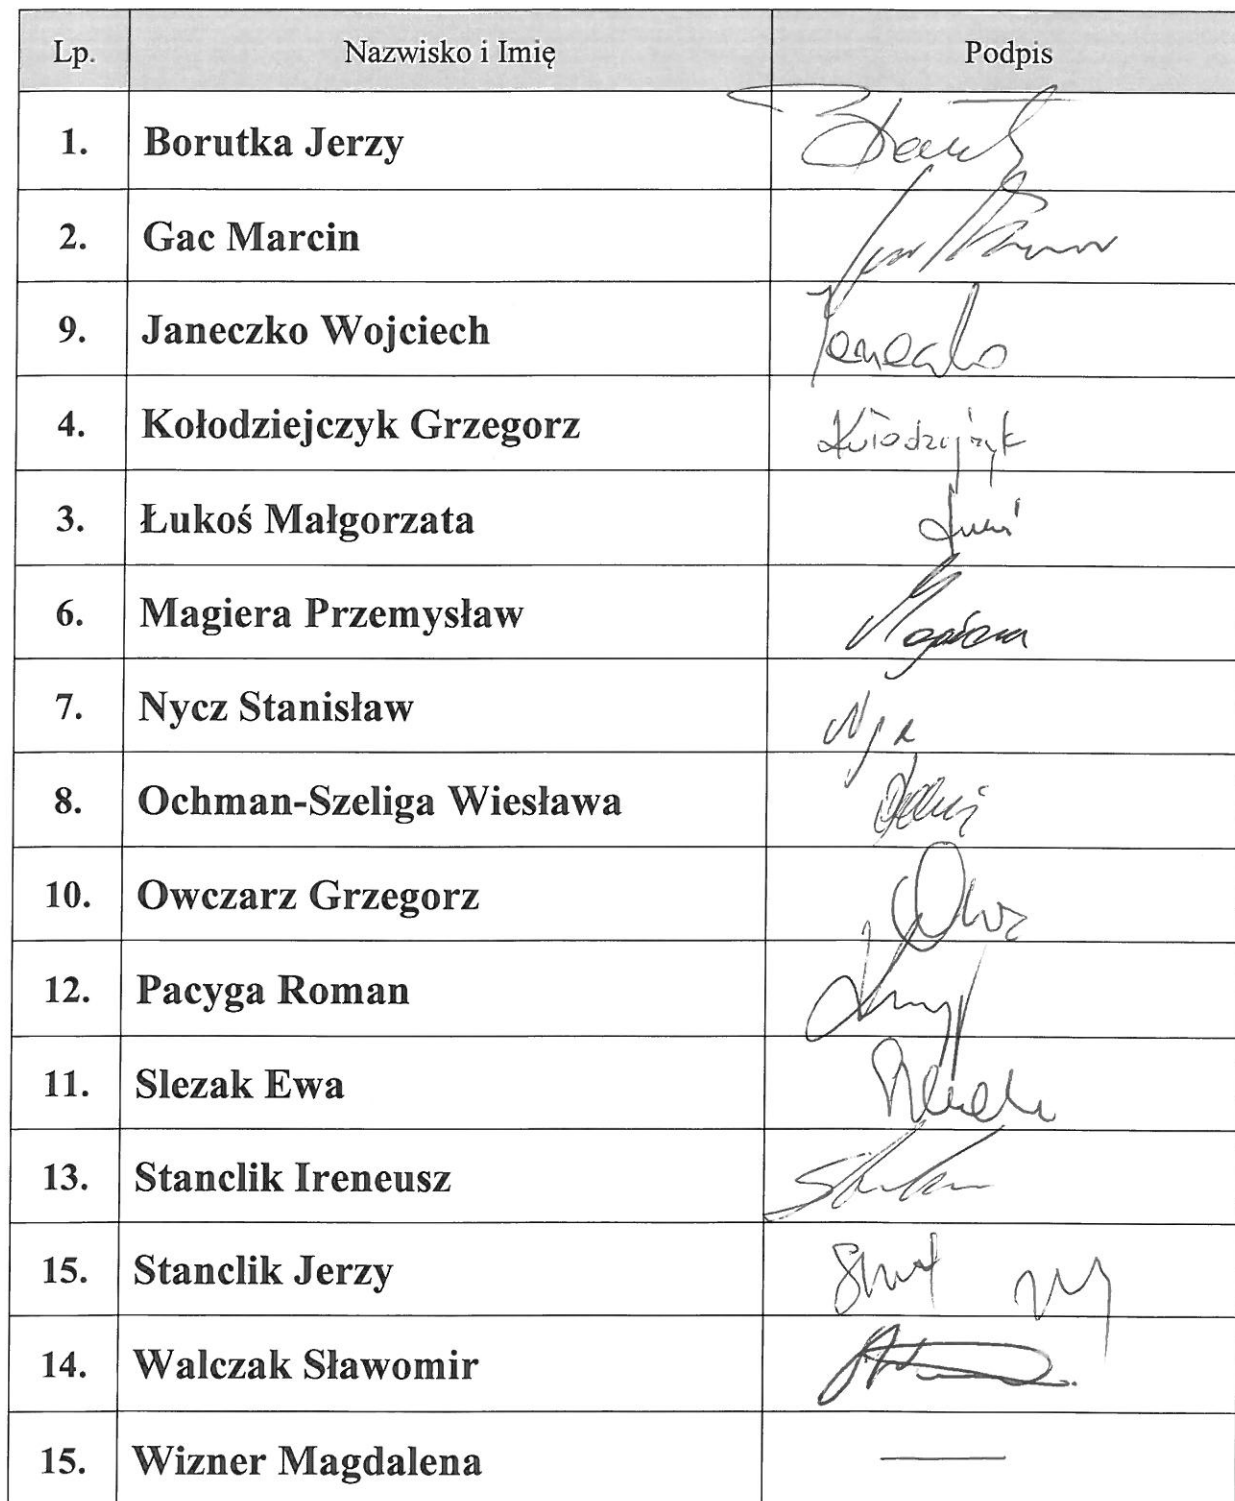 Lp. Nazwisko i Imię Podpis
1. Borutka Jerzy
2. Gac Marcin
9. Janeczko Wojciech
4. Kołodziejczyk Grzegorz
3. Łukoś Małgorzata
6. Magiera Przemysław
7. Nycz Stanisław
8. Ochman-Szeliga Wiesława
10. Owczarz Grzegorz
12. Pacyga Roman
11. Slezak Ewa
13. Stanclik Ireneusz
15. Stanclik Jerzy
14. Walczak Sławomir
15. Wizner Magdalena —